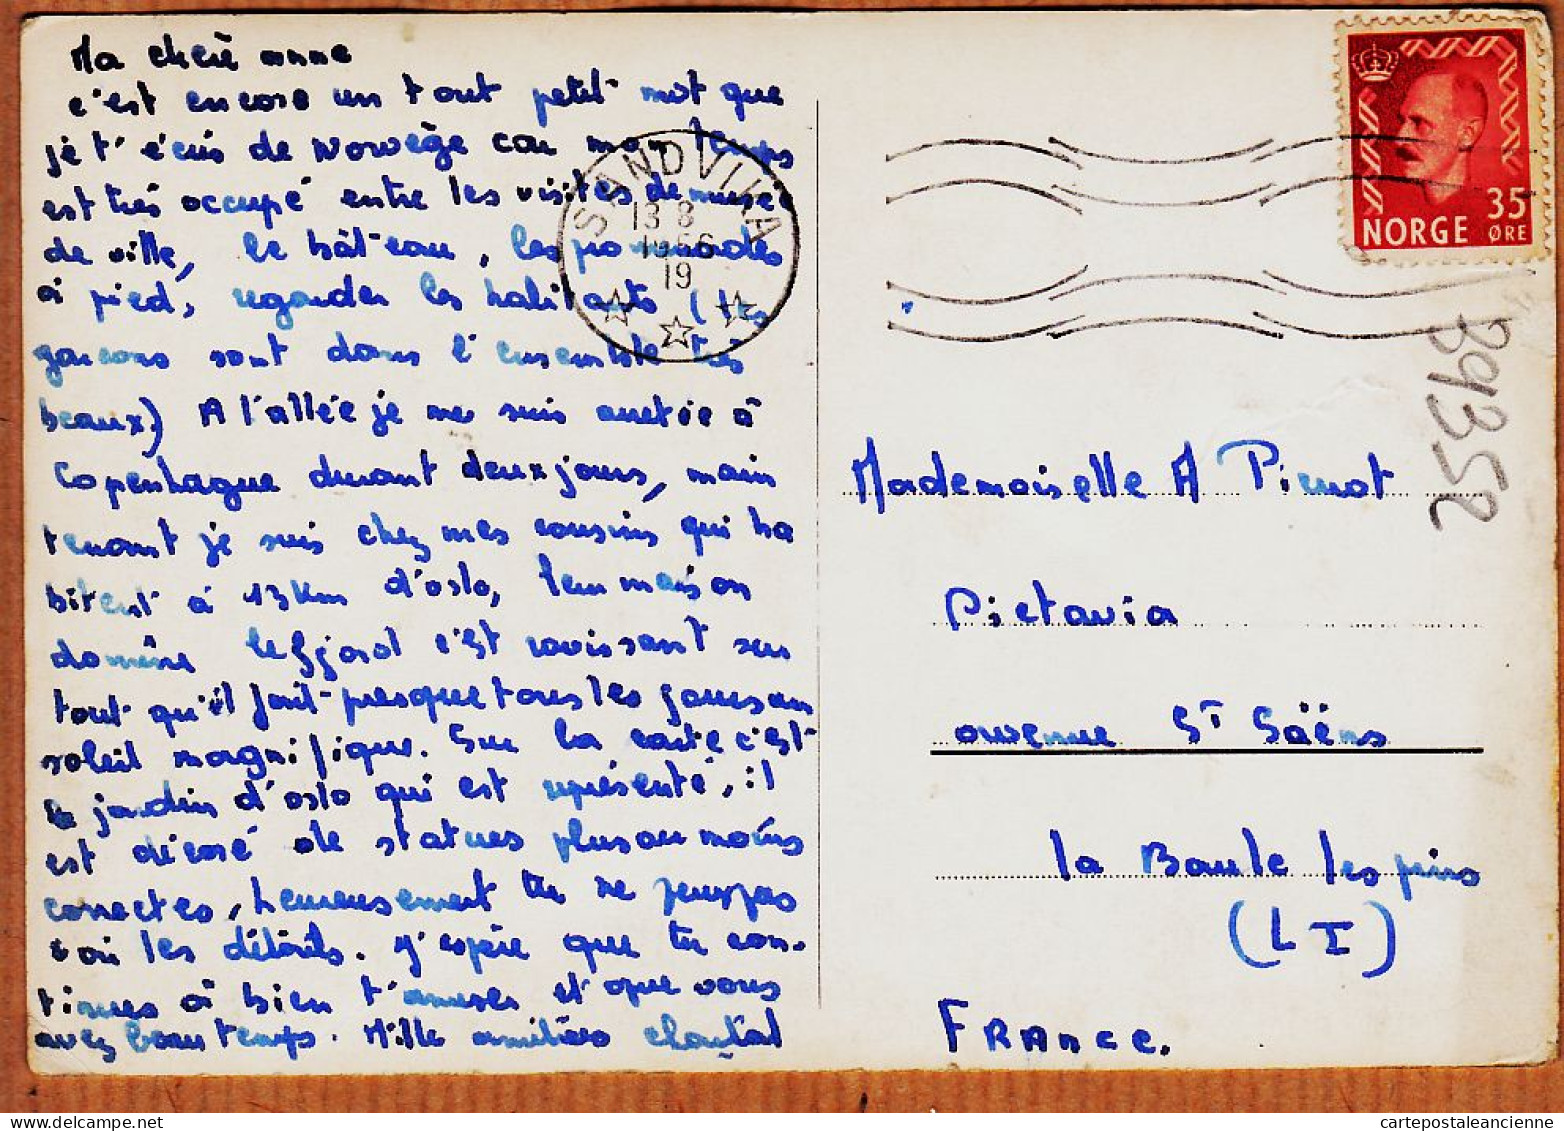 Ma chère anne
c'est encore un tout petit mot que
je t'écris de Norvège car mon temps
est très occupé entre les visites de musée
de ville, le bâteau, les promenades
à pied, regarder les habitants (les
garcons sont dans l'ensemble très
beaux.) A l'allée je me suis arretée à
Copenhague durant deux jours, main
tenant je suis chez mes cousins qui ha
bitent à 13 Km d'oslo, leur maison
domine le fjord c'est ravissant sur
tout qu'il fait presque tous les jours un
soleil magnifique. Sur la carte c'est
le jardin d'oslo qui est représenté, il
est décoré de statues plus ou moins
correctes, heureusement tu ne peux pas
voir les détails. J'espère que tu con-
tinues à bien t'amuser et que vous
avez beau temps. Mille amitiées chantal
SANDVIKA
13 8
1956
19
NORGE 35 ØRE
39352
Mademoiselle A Pierrot
Pictavia
avenue St Säëns
la Baule les pins
(L I)
FRANCE.
cartepostaleancienne.com